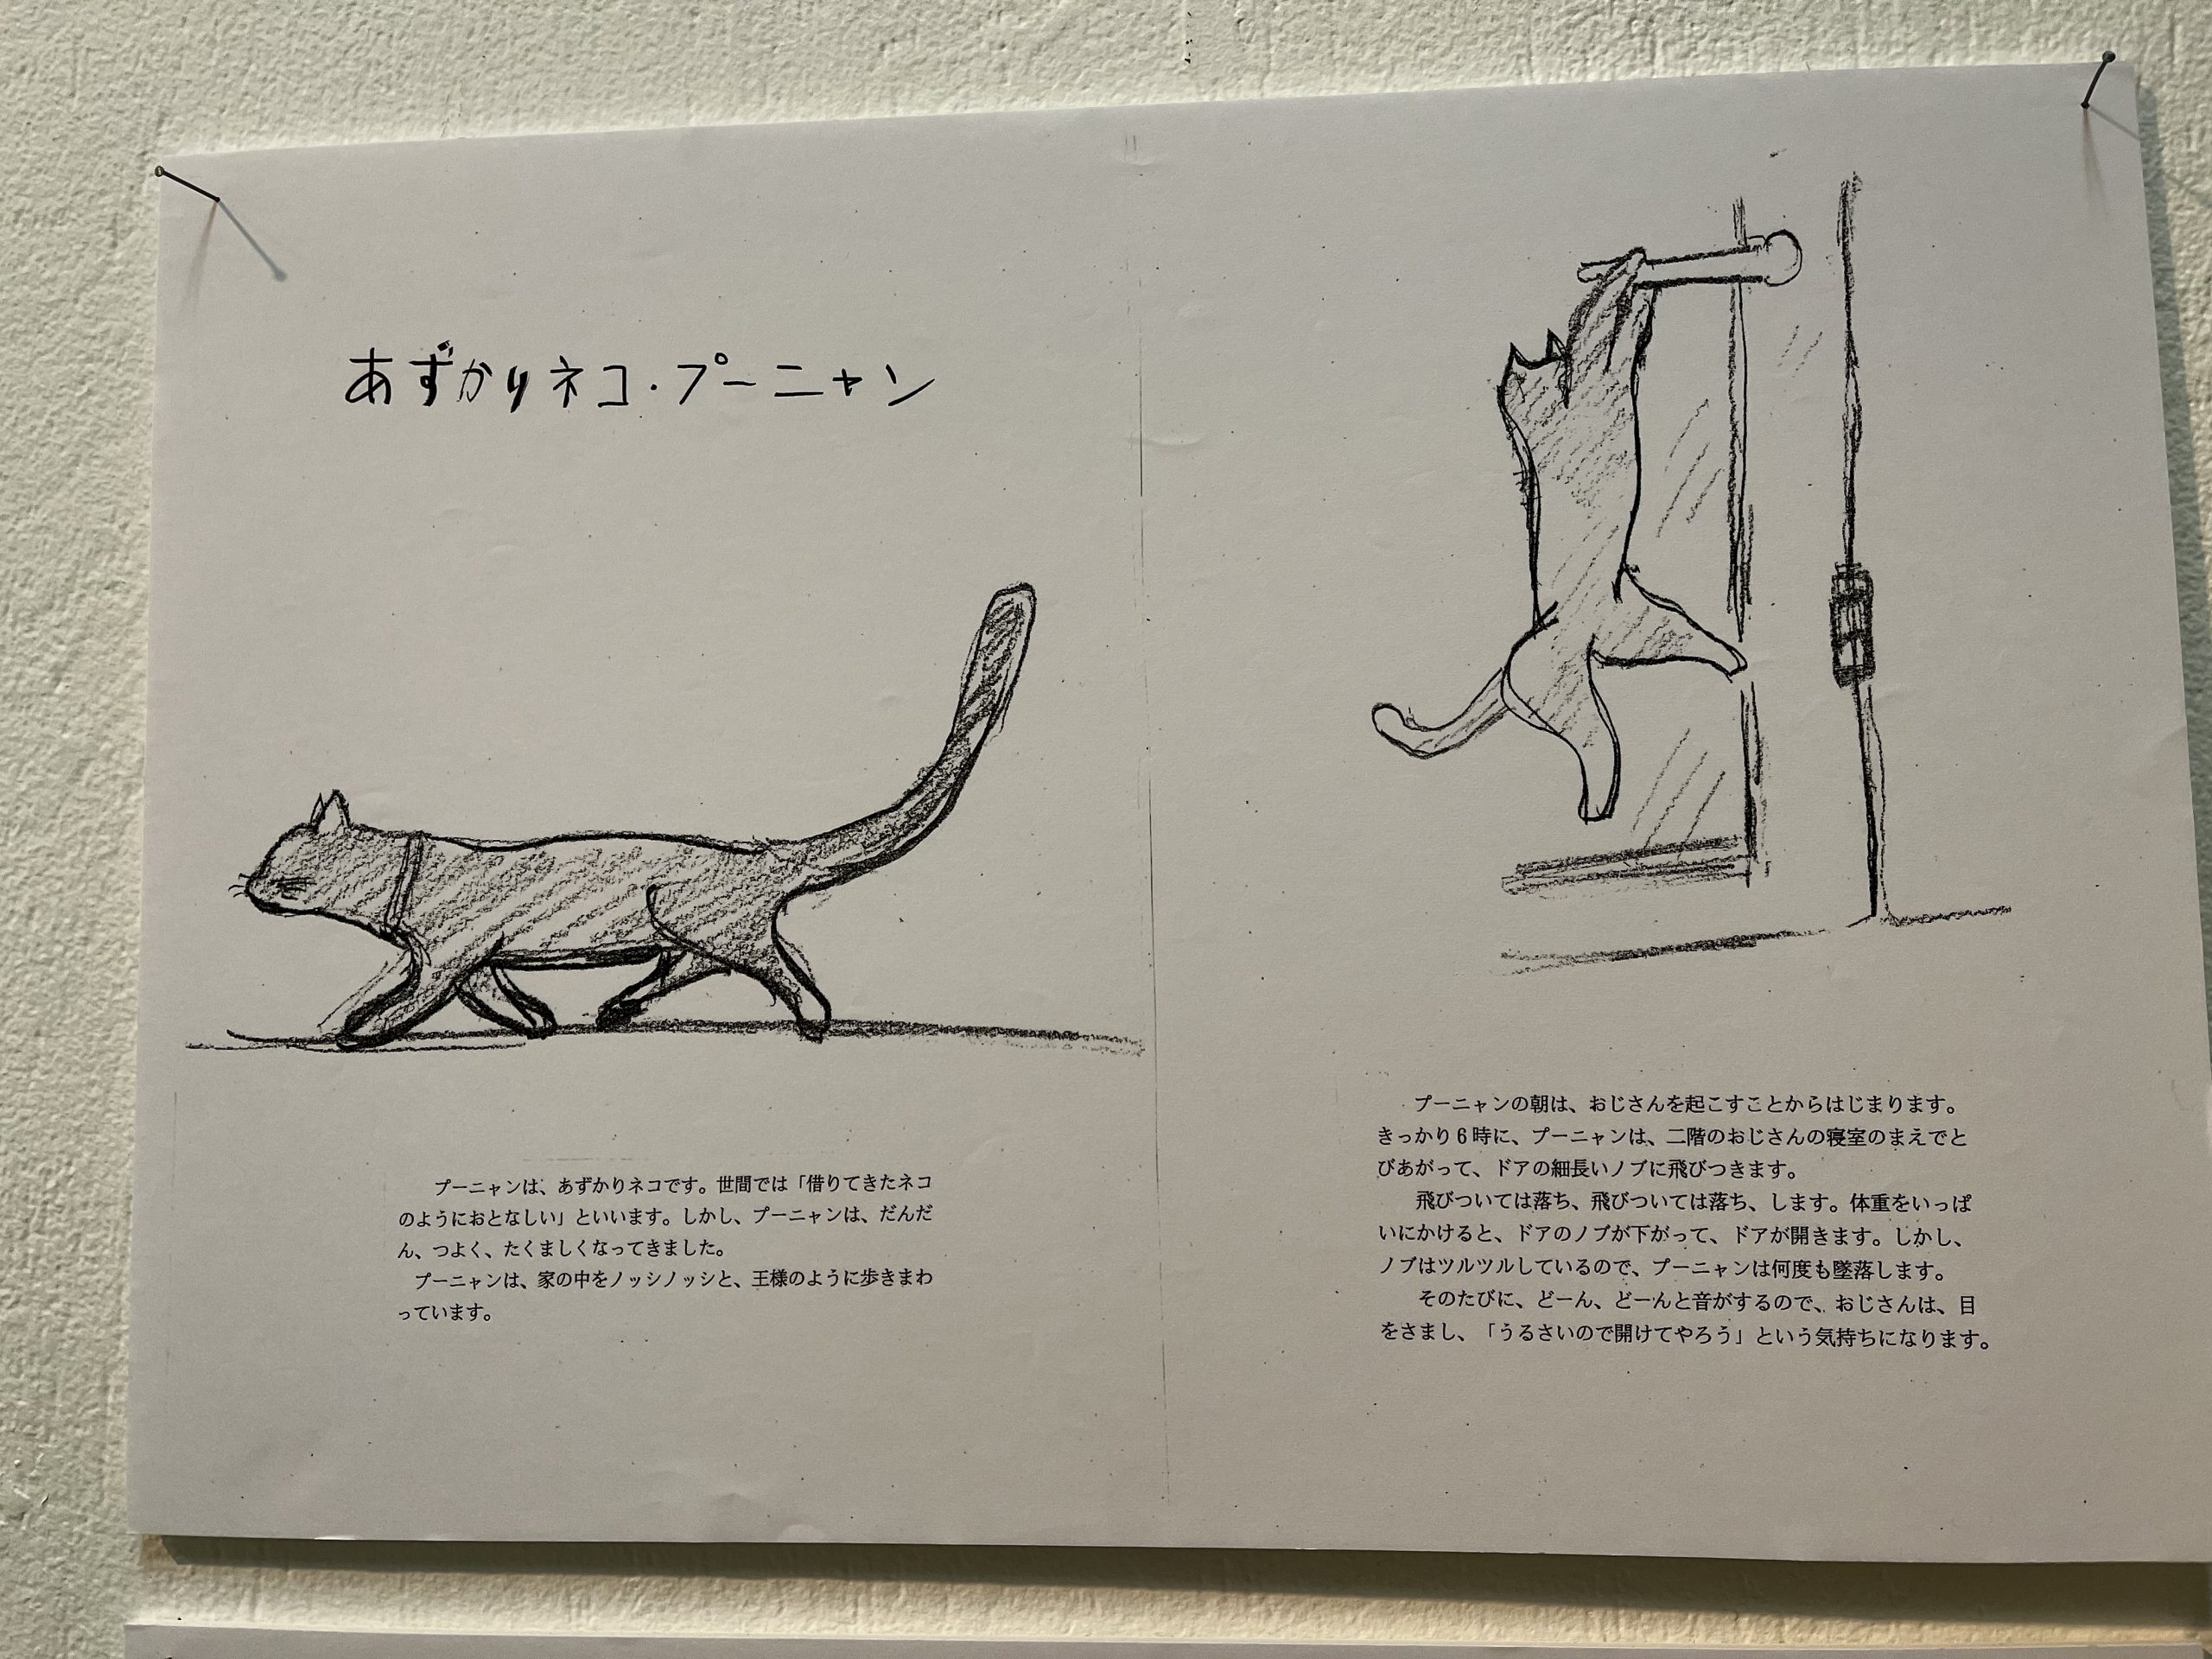 あずかりネコ・プーニャン
プーニャンは、あずかりネコです。世間では「借りてきたネコ
のようにおとなしい」といいます。しかし、プーニャンは、だんだ
ん、つよく、たくましくなってきました。
プーニャンは、家の中をノッシノッシと、王様のように歩きまわ
っています。
プーニャンの朝は、おじさんを起こすことからはじまります。
きっかり6時に、プーニャンは、二階のおじさんの寝室のまえでと
びあがって、ドアの細長いノブに飛びつきます。
飛びついては落ち、飛びついては落ち、します。体重をいっぱ
いにかけると、ドアのノブが下がって、ドアが開きます。しかし、
ノブはツルツルしているので、プーニャンは何度も墜落します。
そのたびに、どーん、どーんと音がするので、おじさんは、目
をさまし、「うるさいので開けてやろう」という気持ちになります。